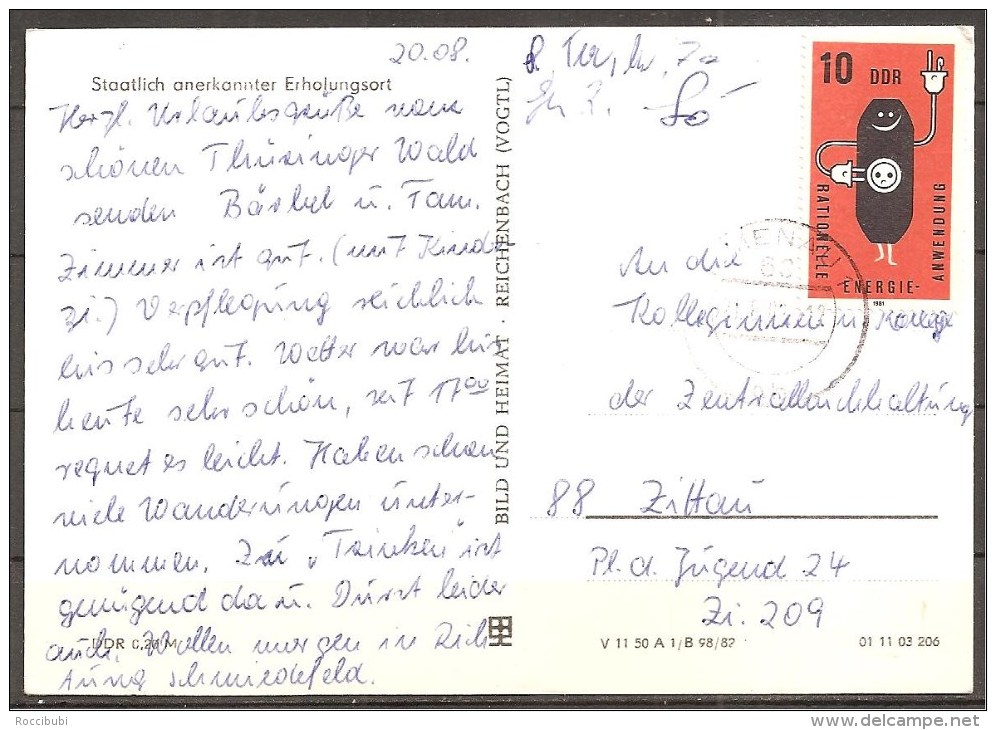 20.08.
Staatlich anerkannter Erholungsort
Herzl. Urlaubsgrüße vom
schönen Thüringer Wald
senden Bärbel u. Fam.
Zimmer ist gut. (mit Kinder
zi.) Verpflegung reichlich
bis sehr gut. Wetter war bis
heute sehr schön, seit 17⁰⁰
regnet es leicht. Haben schon
viele Wanderungen unter-
nommen. Zu „Trinken" ist
genügend da u. Durst leider
auch. Wollen morgen in Rich
tung Schmiedefeld.
DDR 0,20 M
BILD UND HEIMAT · REICHENBACH (VOGTL)
10 DDR
RATIONELLE
ENERGIE-
ANWENDUNG
1981
An die
Kolleginnen u. Kollege
der Zentralbuchhaltung
88 Zittau
Pl. d. Jugend 24
Zi. 209
V 11 50 A 1/B 98/82
01 11 03 206
Roccibubi
delcampe.net